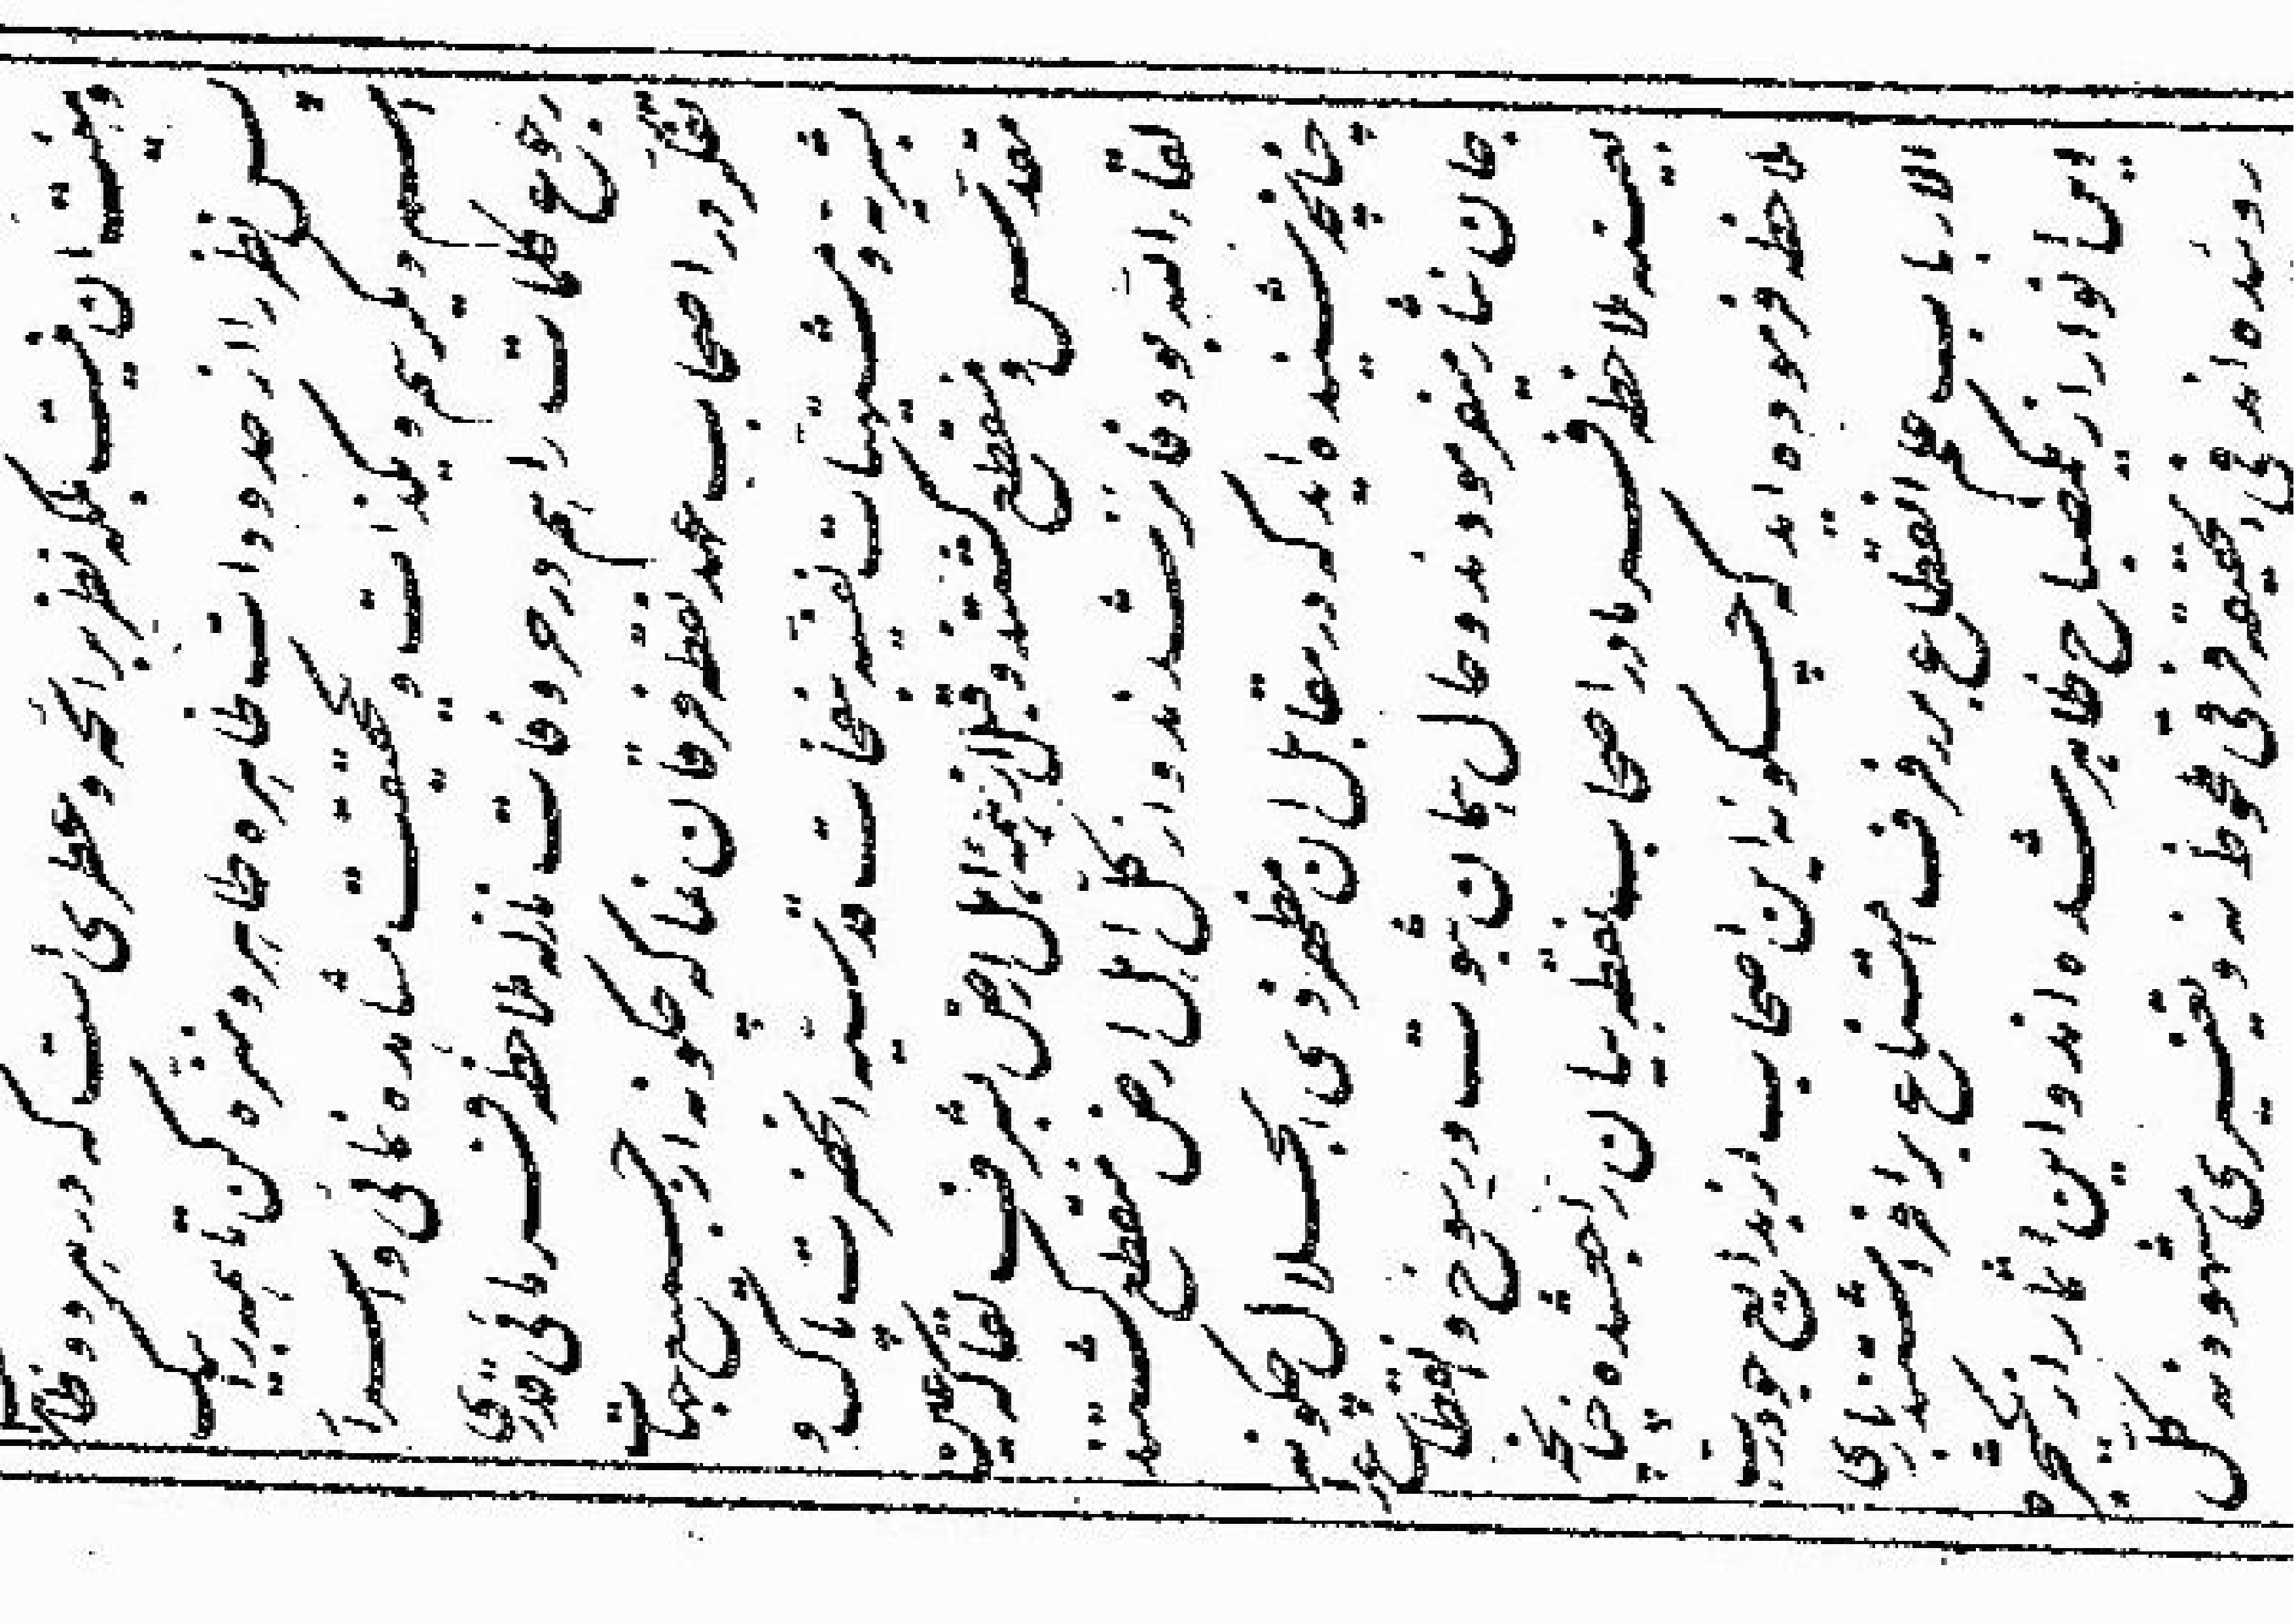 و هیئت آن نیست بلکه نظر برائحه و عطری است که در هر دو ظاهر است
پس نظر را از حدودات ظاهره طاهر و منزه کن تا همه را بیک
اسم و یکرسم و یکذات و یکحقیقت مشاهده نمائی و اسرار
رجوع کلمات را هم در حروفات نازله ملاحظه فرمائی قدری
تفکر در اصحاب عهد نقطه فرقان نما که چگونه از جمیع جهات
بشریه و مشتهیات نفسیه بنفحات قدسیه آنحضرت پاک و
مقدس و منقطع گشتند و قبل از همه اهل ارض بشرف لقا که عین
لقاء الله بود فائز شدند و از کل اهل ارض منقطع گشتند
چنانچه شنیده اید که در مقابل آن مظهر ذی الجلال چگونه
جان نثار میفرمودند و حال همان ثبوت و رسوخ و انقطاع را
بعینه ملاحظه فرما در اصحاب نقطه بیان راجع شده چنانچه
ملاحظه فرموده اید که چگونه این اصحاب از بدایع جود رب
الارباب علم انقطاع بر رفرف امتناع برافراشتند باری
این انوار از یک مصباح ظاهر شده اند و این اثمار از یک شجره
روئیده اند فی الحقیقه فرقی ملحوظ نه و تغییری مشهود نه کل